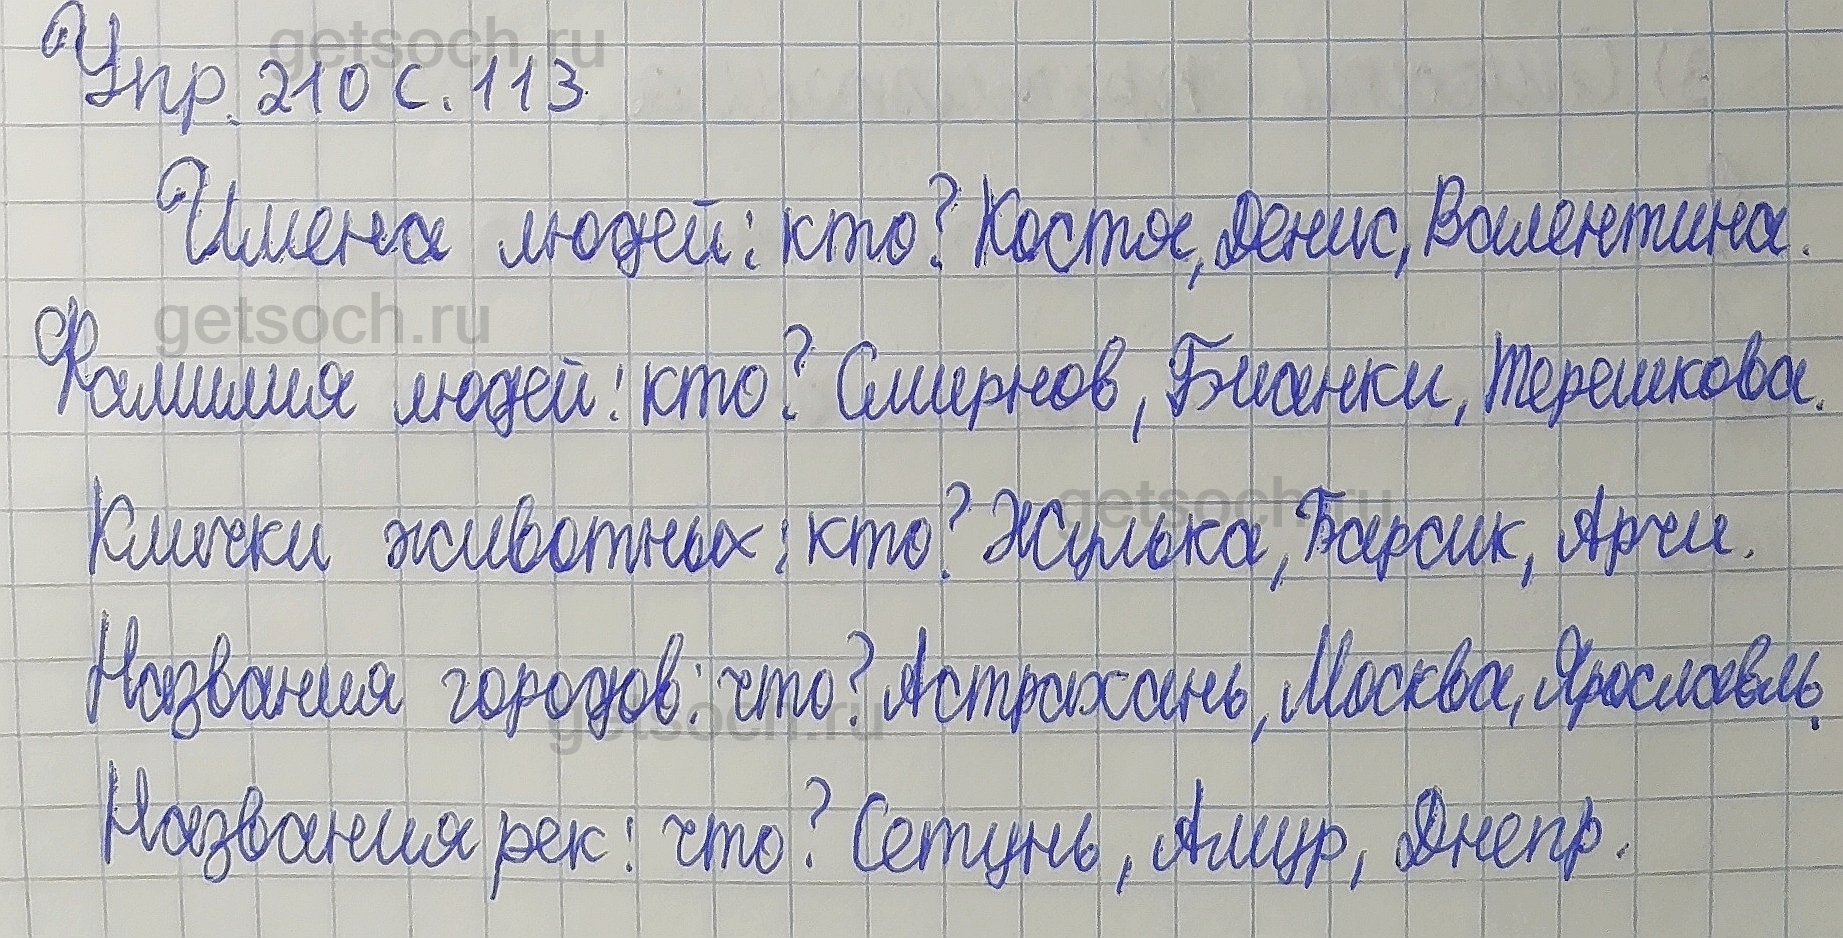 getsoch.ru
Упр. 210 с. 113
Имена людей: кто? Костя, Денис, Валентина.
getsoch.ru
Фамилия людей: кто? Смирнов, Бианки, Терешкова.
getsoch.ru
Клички животных: кто? Жулька, Барсик, Арчи.
Названия городов: что? Астрахань, Москва, Ярославль.
getsoch.ru
Названия рек: что? Сетунь, Амур, Днепр.